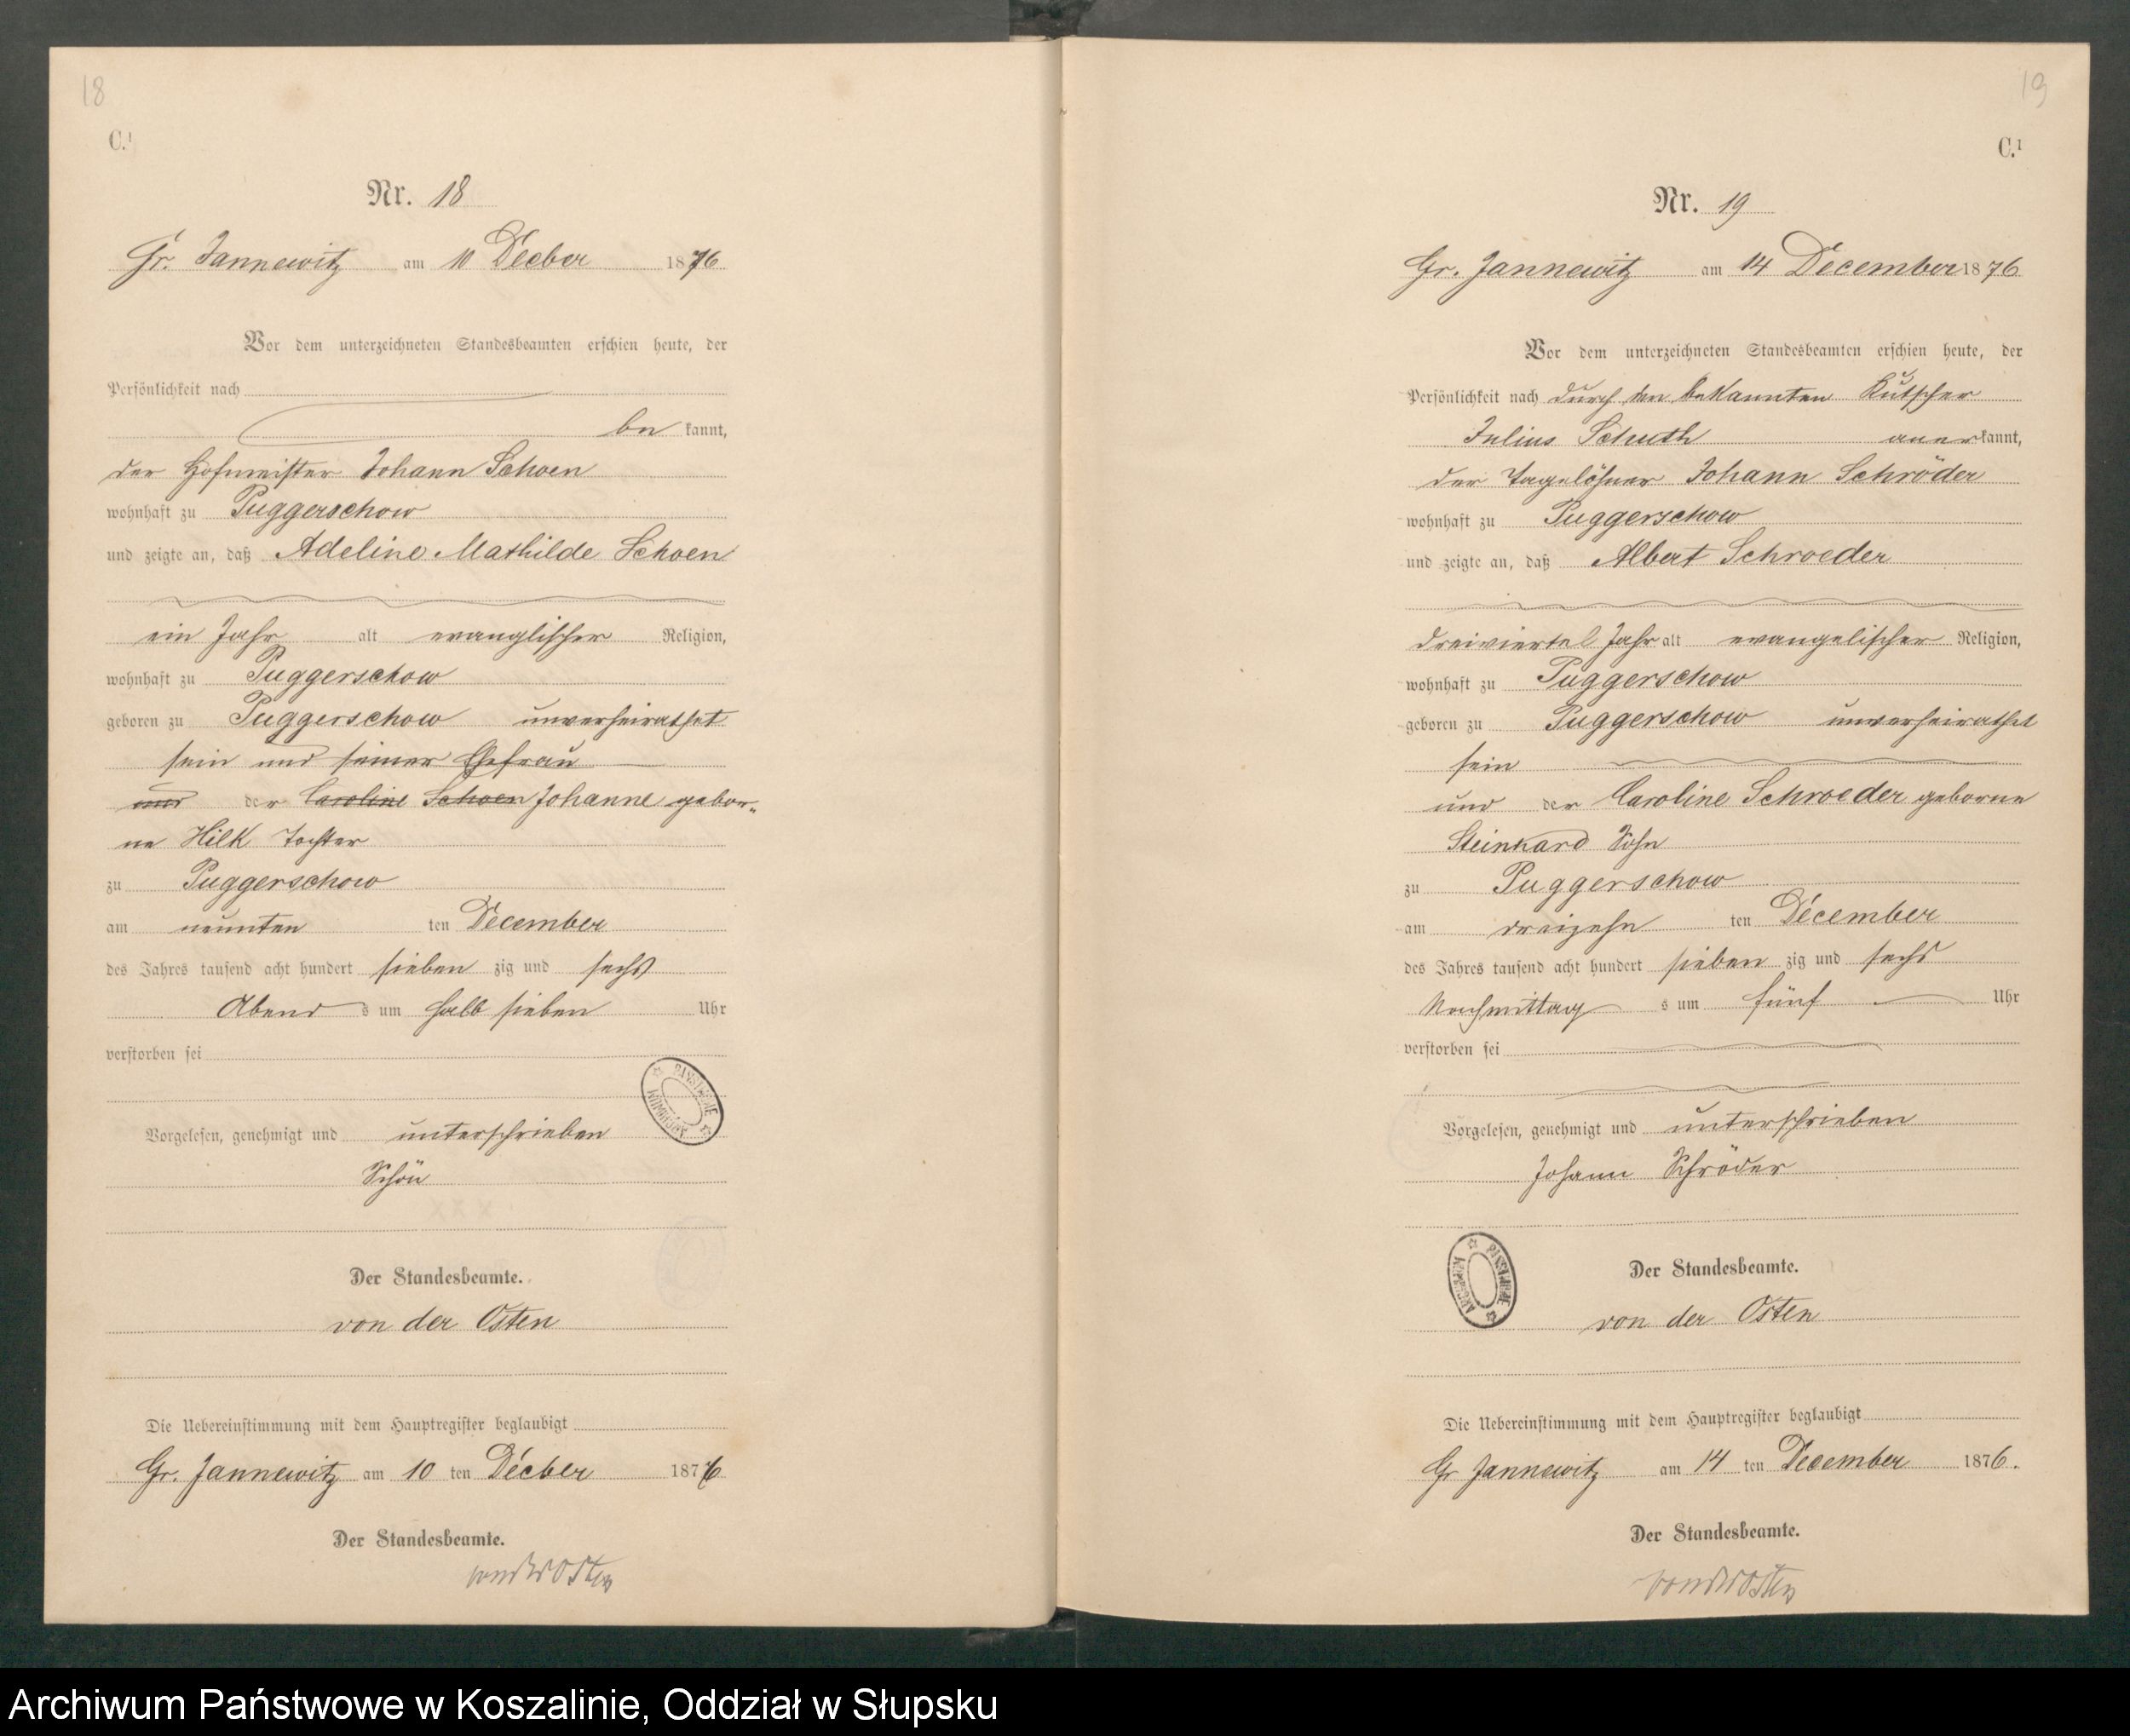 18
C.¹
Nr. 18
Gr. Jannewitz am 10 Decber 1876
Vor dem unterzeichneten Standesbeamten erschien heute, der
Persönlichkeit nach
be kannt,
der Hofmeister Johann Schoen
wohnhaft zu Puggerschow
und zeigte an, daß Adeline Mathilde Schoen
ein Jahr alt evanglischer Religion,
wohnhaft zu Puggerschow
geboren zu Puggerschow unverheirathet
sein und seiner Ehefrau
und der Caroline Schoen Johanne gebor-
ne Hilk Tochter
zu Puggerschow
am neunten ten December
des Jahres tausend acht hundert sieben zig und sechs
Abend s um halb sieben Uhr
verstorben sei
Vorgelesen, genehmigt und unterschrieben
Schön
Der Standesbeamte.
von der Osten
Die Uebereinstimmung mit dem Hauptregister beglaubigt
Gr. Jannewitz am 10 ten Decber 1876
Der Standesbeamte.
von der Osten
19
C.¹
Nr. 19
Gr. Jannewitz am 14 December 1876
Vor dem unterzeichneten Standesbeamten erschien heute, der
Persönlichkeit nach durch den bekannten Kutscher
Julius Schuth anerkannt,
der Tagelöhner Johann Schröder
wohnhaft zu Puggerschow
und zeigte an, daß Albert Schroeder
dreiviertel Jahr alt evangelischer Religion,
wohnhaft zu Puggerschow
geboren zu Puggerschow unverheirathet
sein
und der Caroline Schroeder geborne
Steinkard Sohn
zu Puggerschow
am dreizehn ten December
des Jahres tausend acht hundert sieben zig und sechs
Nachmittag s um fünf Uhr
verstorben sei
Vorgelesen, genehmigt und unterschrieben
Johann Schröder
Der Standesbeamte.
von der Osten
Die Uebereinstimmung mit dem Hauptregister beglaubigt
Gr Jannewitz am 14 ten December 1876.
Der Standesbeamte.
von der Osten
Archiwum Państwowe w Koszalinie, Oddział w Słupsku